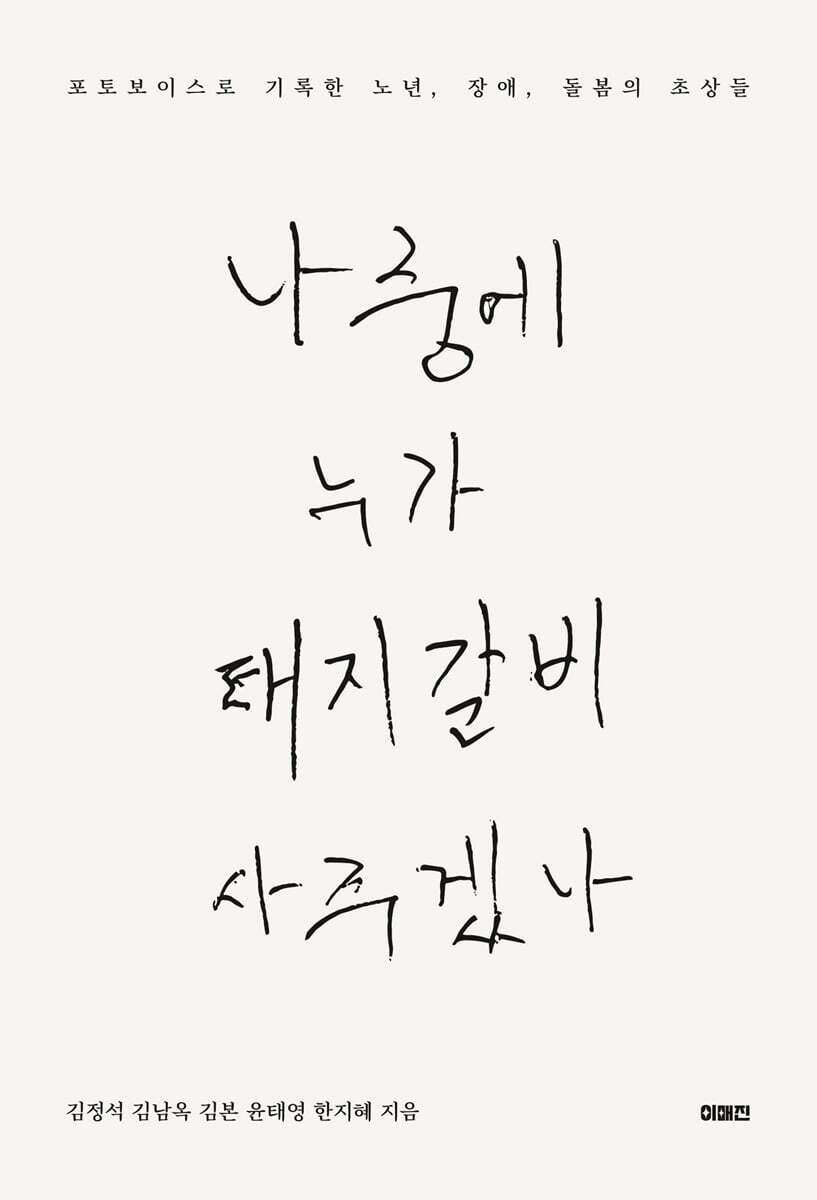 포토보이스로 기록한 노년, 장애, 돌봄의 초상들
나중에
누가
돼지갈비
사주겠나
김정석 김남옥 김본 윤태영 한지혜 지음
이매진